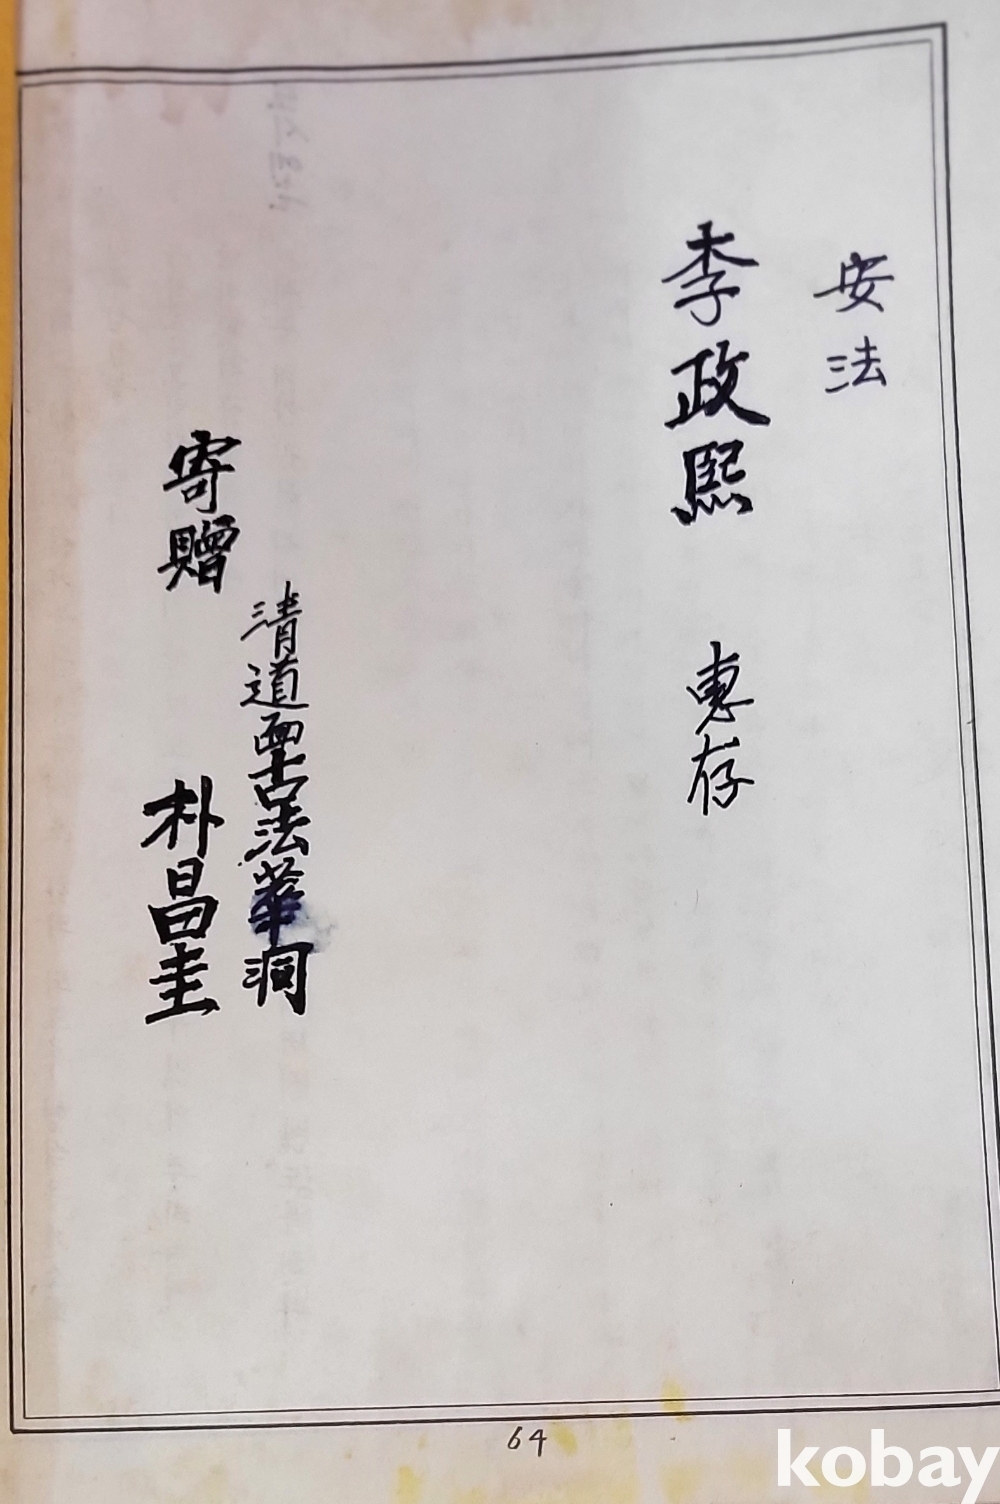 安法
李政熙 惠存
清道面古法華洞
寄贈 朴昌圭
64
kobay